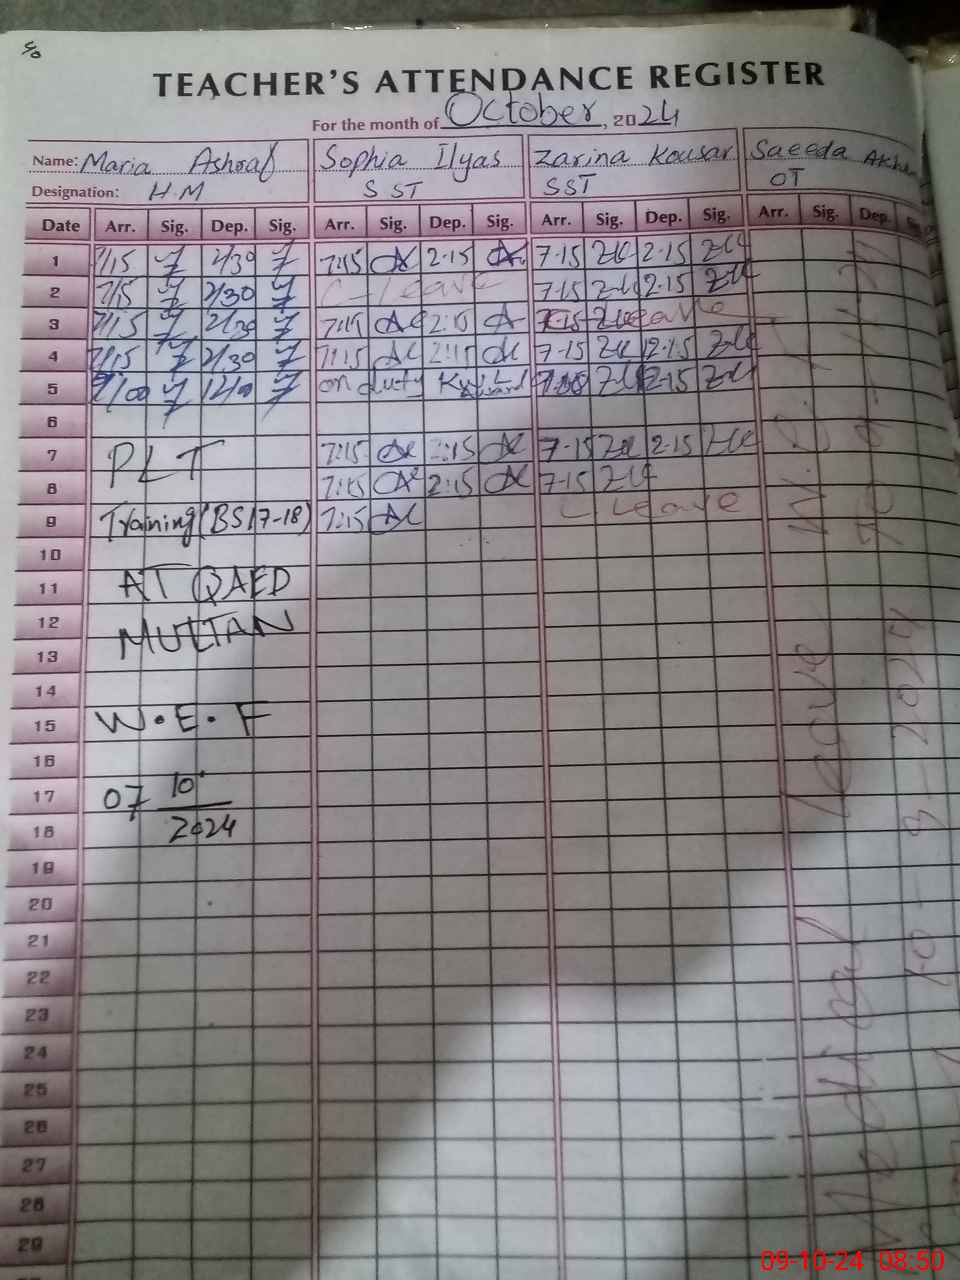 TEACHER'S ATTENDANCE REGISTER
For the month of October, 2024
Name: Maria Ashraf Sophia Ilyas Zarina Kousar Saeeda
Designation: H.M SST SST OT
Date Arr. Sig. Dep. Sig. Arr. Sig. Dep. Sig. Arr. Sig. Dep. Sig. Arr. Sig. Dep.
1 7/15 2/30 7:15 2:15 7-15 2-15
2 7/15 2/30 C-Leave 7-15 2-15
3 7/15 2/30 7:15 2:15 7-15 Leave
4 7/15 2/30 7:15 2:15 7-15 2-15
5 on duty 2-15
6
7 PLT 7:15 2:15 7-15 2-15
8 7:15 2:15 7-15
9 Training (BS17-18) 7:15 C Leave
10
11 AT QAED
12 MULTAN
13
14
15 W.E.F
16
17 07 10
18 2024
19
20
21
22
23
24
25
26
27
28
29
Medical Leave
09-10-24 08:50